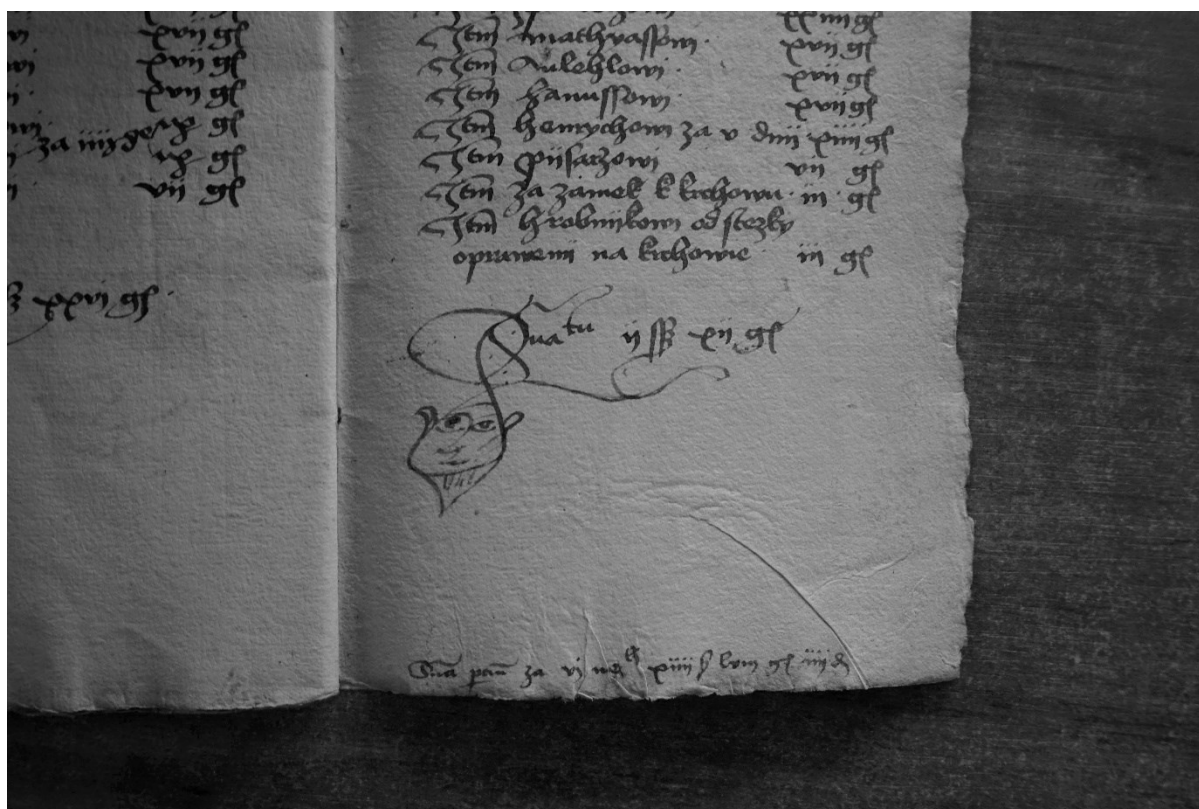 xvii gl
xvii gl
xvii gl
gl
za iiii d ix gl
vii gl
xxvi gl
xxiiii gl
Item mathyassowi xvii gl
Item Aulehlowi xvii gl
Item hanussowi xvii gl
Item henrychowi za v dnii xiiii gl
Item pijsarzowi vii gl
Item za zamek k krchowu iii gl
Item hrobnijkowi od stezky
oprawenij na krchowie iii gl
Sua tu ii ss xii gl
Sua za vi xiiii lviii gl iiii d